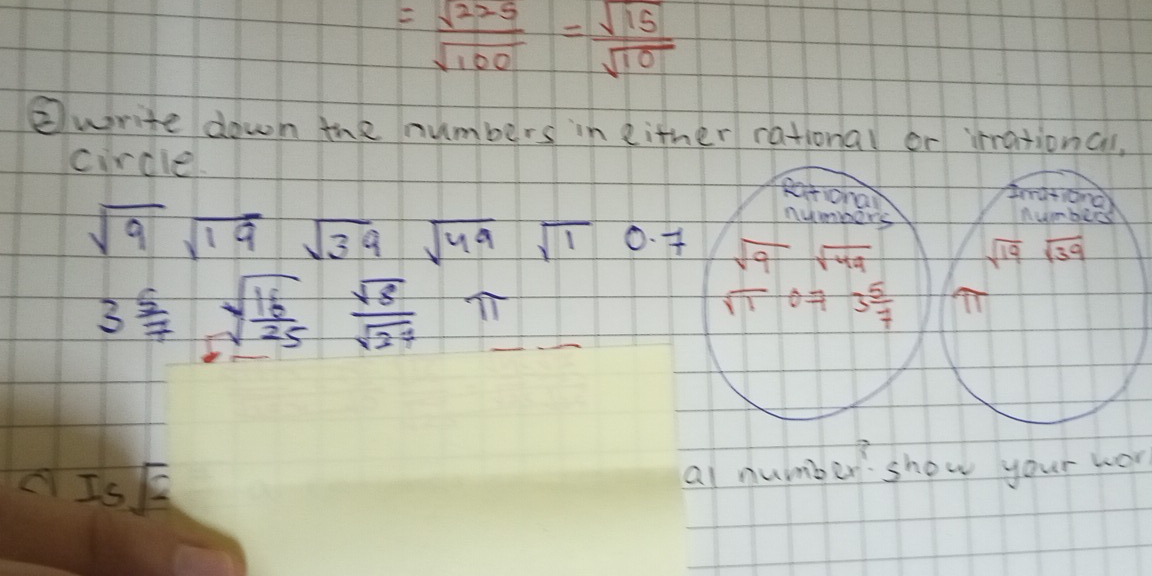 = √225/√100 = √15/√10
② write down the numbers in either rational or irrational
circle.
√9 √19 √39 √49 √1 0.7
3 5/7 √16/25 √8/√27 π
Rational
numbers
√9 √49
√1 0.7 3 5/7
Irrational
numbers
√19 √39
π
Is √ al number? show your wor